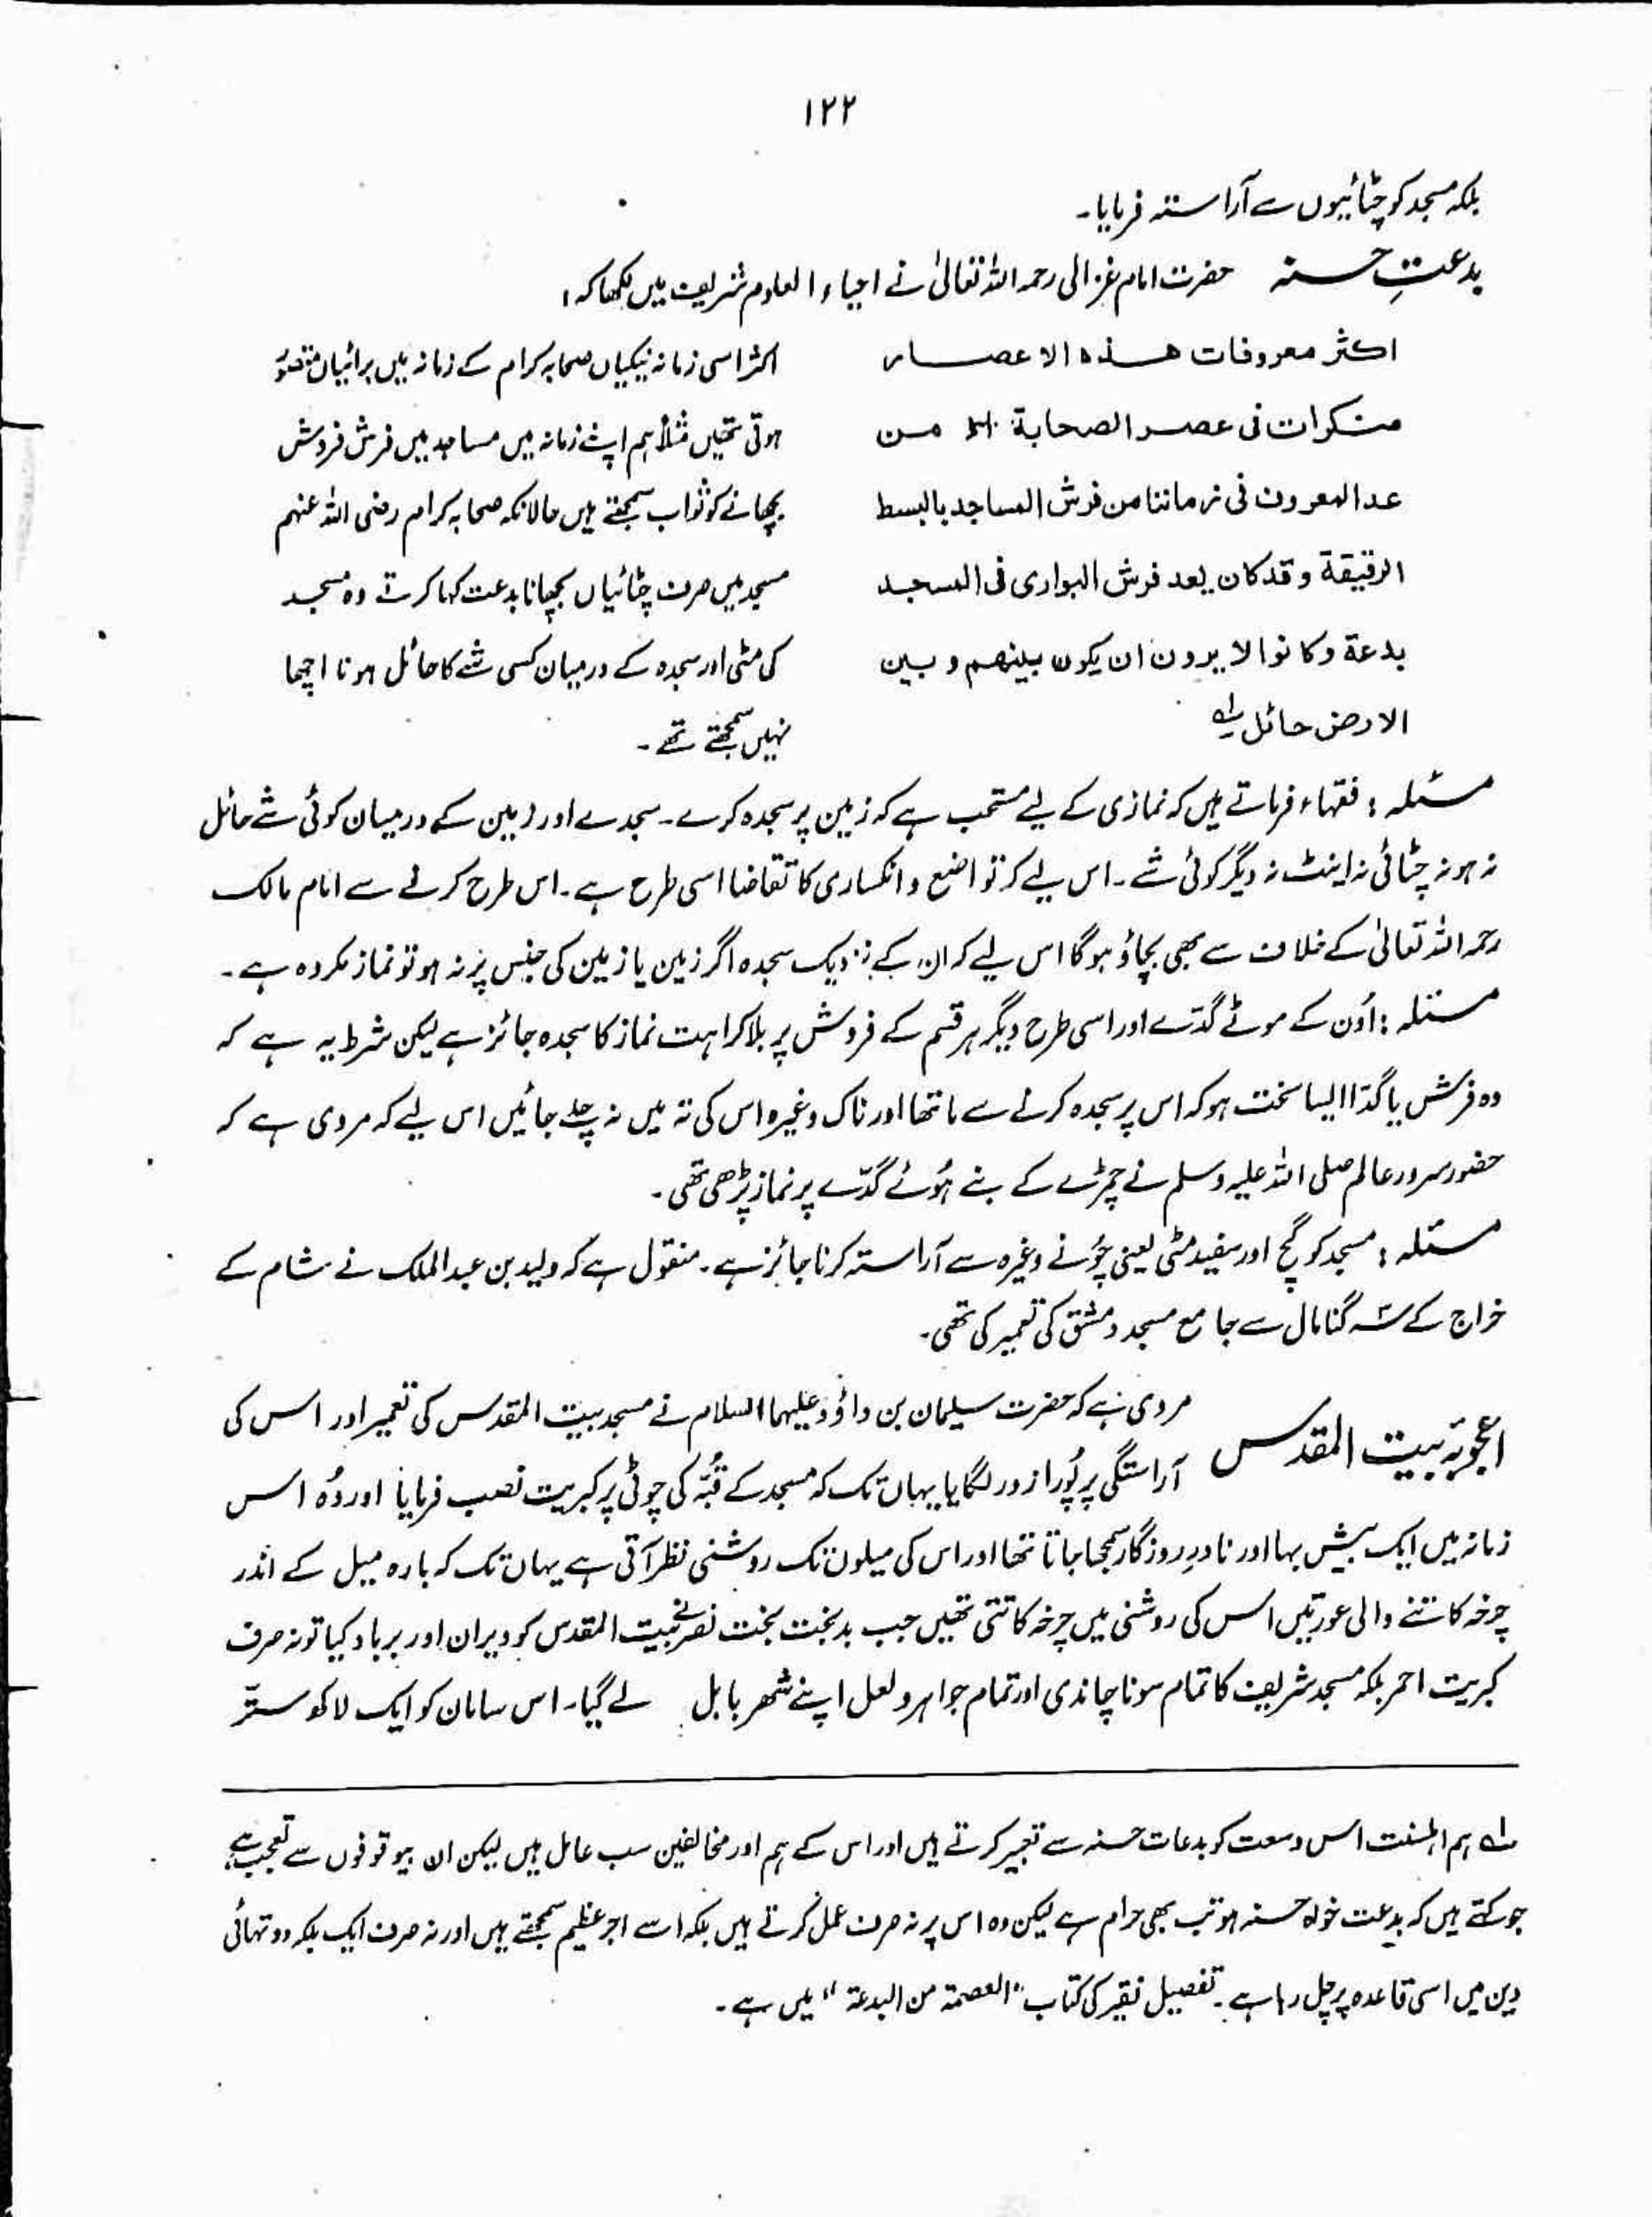 ۱۲۲
بلکہ مسجد کو چٹائیوں سے آراستہ فرمایا۔
بدعتِ حسنہ حضرت امام غزالی رحمہ اللہ تعالیٰ نے احیاء العلوم شریف میں لکھا کہ:
اکثر معروفات ھذہ الاعصار
منکرات فی عصر الصحابة اذ من
عد المعروف فی زماننا من فرش المساجد بالبسط
الرقیقة وقد کان یعد فرش البواری فی المسجد
بدعة وکانوا لا یرون ان یکون بینھم و بین
الارض حائل لہ
اکثر اسی زمانہ نیکیاں صحابہ کرام کے زمانہ میں برائیاں متصور
ہوتی تھیں مثلاً ہم اپنے زمانہ میں مساجد میں فرش فروش
بچھانے کو ثواب سمجھتے ہیں حالانکہ صحابہ کرام رضی اللہ عنہم
مسجد میں صرف چٹائیاں بچھانا بدعت کہا کرتے وہ مسجد
کی مٹی اور سجدہ کے درمیان کسی شے کا حائل ہونا اچھا
نہیں سمجھتے تھے۔
مسئلہ: فقہاء فرماتے ہیں کہ نمازی کے لیے مستحب ہے کہ زمین پر سجدہ کرے۔ سجدے اور زمین کے درمیان کوئی شے حائل
نہ ہو نہ چٹائی نہ اینٹ نہ دیگر کوئی شے۔ اس لیے کہ تواضع و انکساری کا تقاضا اسی طرح ہے۔ اس طرح کرنے سے امام مالک
رحمہ اللہ تعالیٰ کے خلاف سے بھی بچاؤ ہوگا اس لیے کہ ان کے نزدیک سجدہ اگر زمین یا زمین کی جنس پر نہ ہو تو نماز مکروہ ہے۔
مسئلہ: اُون کے موٹے گدّے اور اسی طرح دیگر ہر قسم کے فروش پر بلا کراہت نماز کا سجدہ جائز ہے لیکن شرط یہ ہے کہ
وہ فرش یا گدّا ایسا سخت ہو کہ اس پر سجدہ کرنے سے ماتھا اور ناک وغیرہ اس کی تہ میں نہ چلے جائیں اس لیے کہ مروی ہے کہ
حضور سرور عالم صلی اللہ علیہ وسلم نے چمڑے کے بنے ہُوئے گدّے پر نماز پڑھی تھی۔
مسئلہ: مسجد کو گچ اور سفید مٹی یعنی چُونے وغیرہ سے آراستہ کرنا جائز ہے۔ منقول ہے کہ ولید بن عبدالملک نے شام کے
خراج کے سہ گنا مال سے جامع مسجد دمشق کی تعمیر کی تھی۔
اعجوبۂ بیت المقدس مروی ہے کہ حضرت سلیمان بن داؤد علیہما السلام نے مسجد بیت المقدس کی تعمیر اور اس کی
آراستگی پر پُورا زور لگایا یہاں تک کہ مسجد کے قبّہ کی چوٹی پر کبریت نصب فرمایا اور وُہ اس
زمانہ میں ایک بیش بہا اور نادرِ روزگار سمجھا جاتا تھا اور اس کی میلوں تک روشنی نظر آتی ہے یہاں تک کہ بارہ میل کے اندر
چرخہ کاتنے والی عورتیں اس کی روشنی میں چرخہ کاتتی تھیں جب بدبخت بخت نصر نے بیت المقدس کو ویران اور برباد کیا تو نہ صرف
کبریت احمر بلکہ مسجد شریف کا تمام سونا چاندی اور تمام جواہر و لعل اپنے شہر بابل لے گیا۔ اس سامان کو ایک لاکھ ستّر
لہ ہم اہلسنت اس وسعت کو بدعات حسنہ سے تعبیر کرتے ہیں اور اس کے ہم اور مخالفین سب عامل ہیں لیکن ان بیوقوفوں سے تعجب ہے
جو کہتے ہیں کہ بدعت خواہ حسنہ ہو تب بھی حرام ہے لیکن وہ اس پر نہ صرف عمل کرتے ہیں بلکہ اسے اجر عظیم سمجھتے ہیں اور نہ صرف ایک بلکہ دو تہائی
دین میں اسی قاعدہ پر چل رہا ہے۔ تفصیل فقیر کی کتاب "العصمۃ من البدعۃ" میں ہے۔